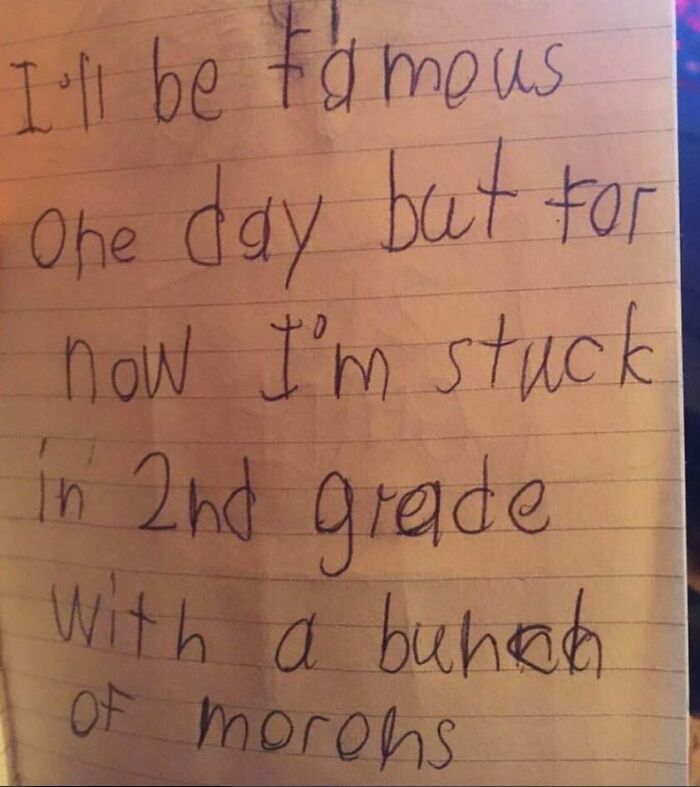 I'll be famous
one day but for
now I'm stuck
in 2nd grade
with a bunch
of morons